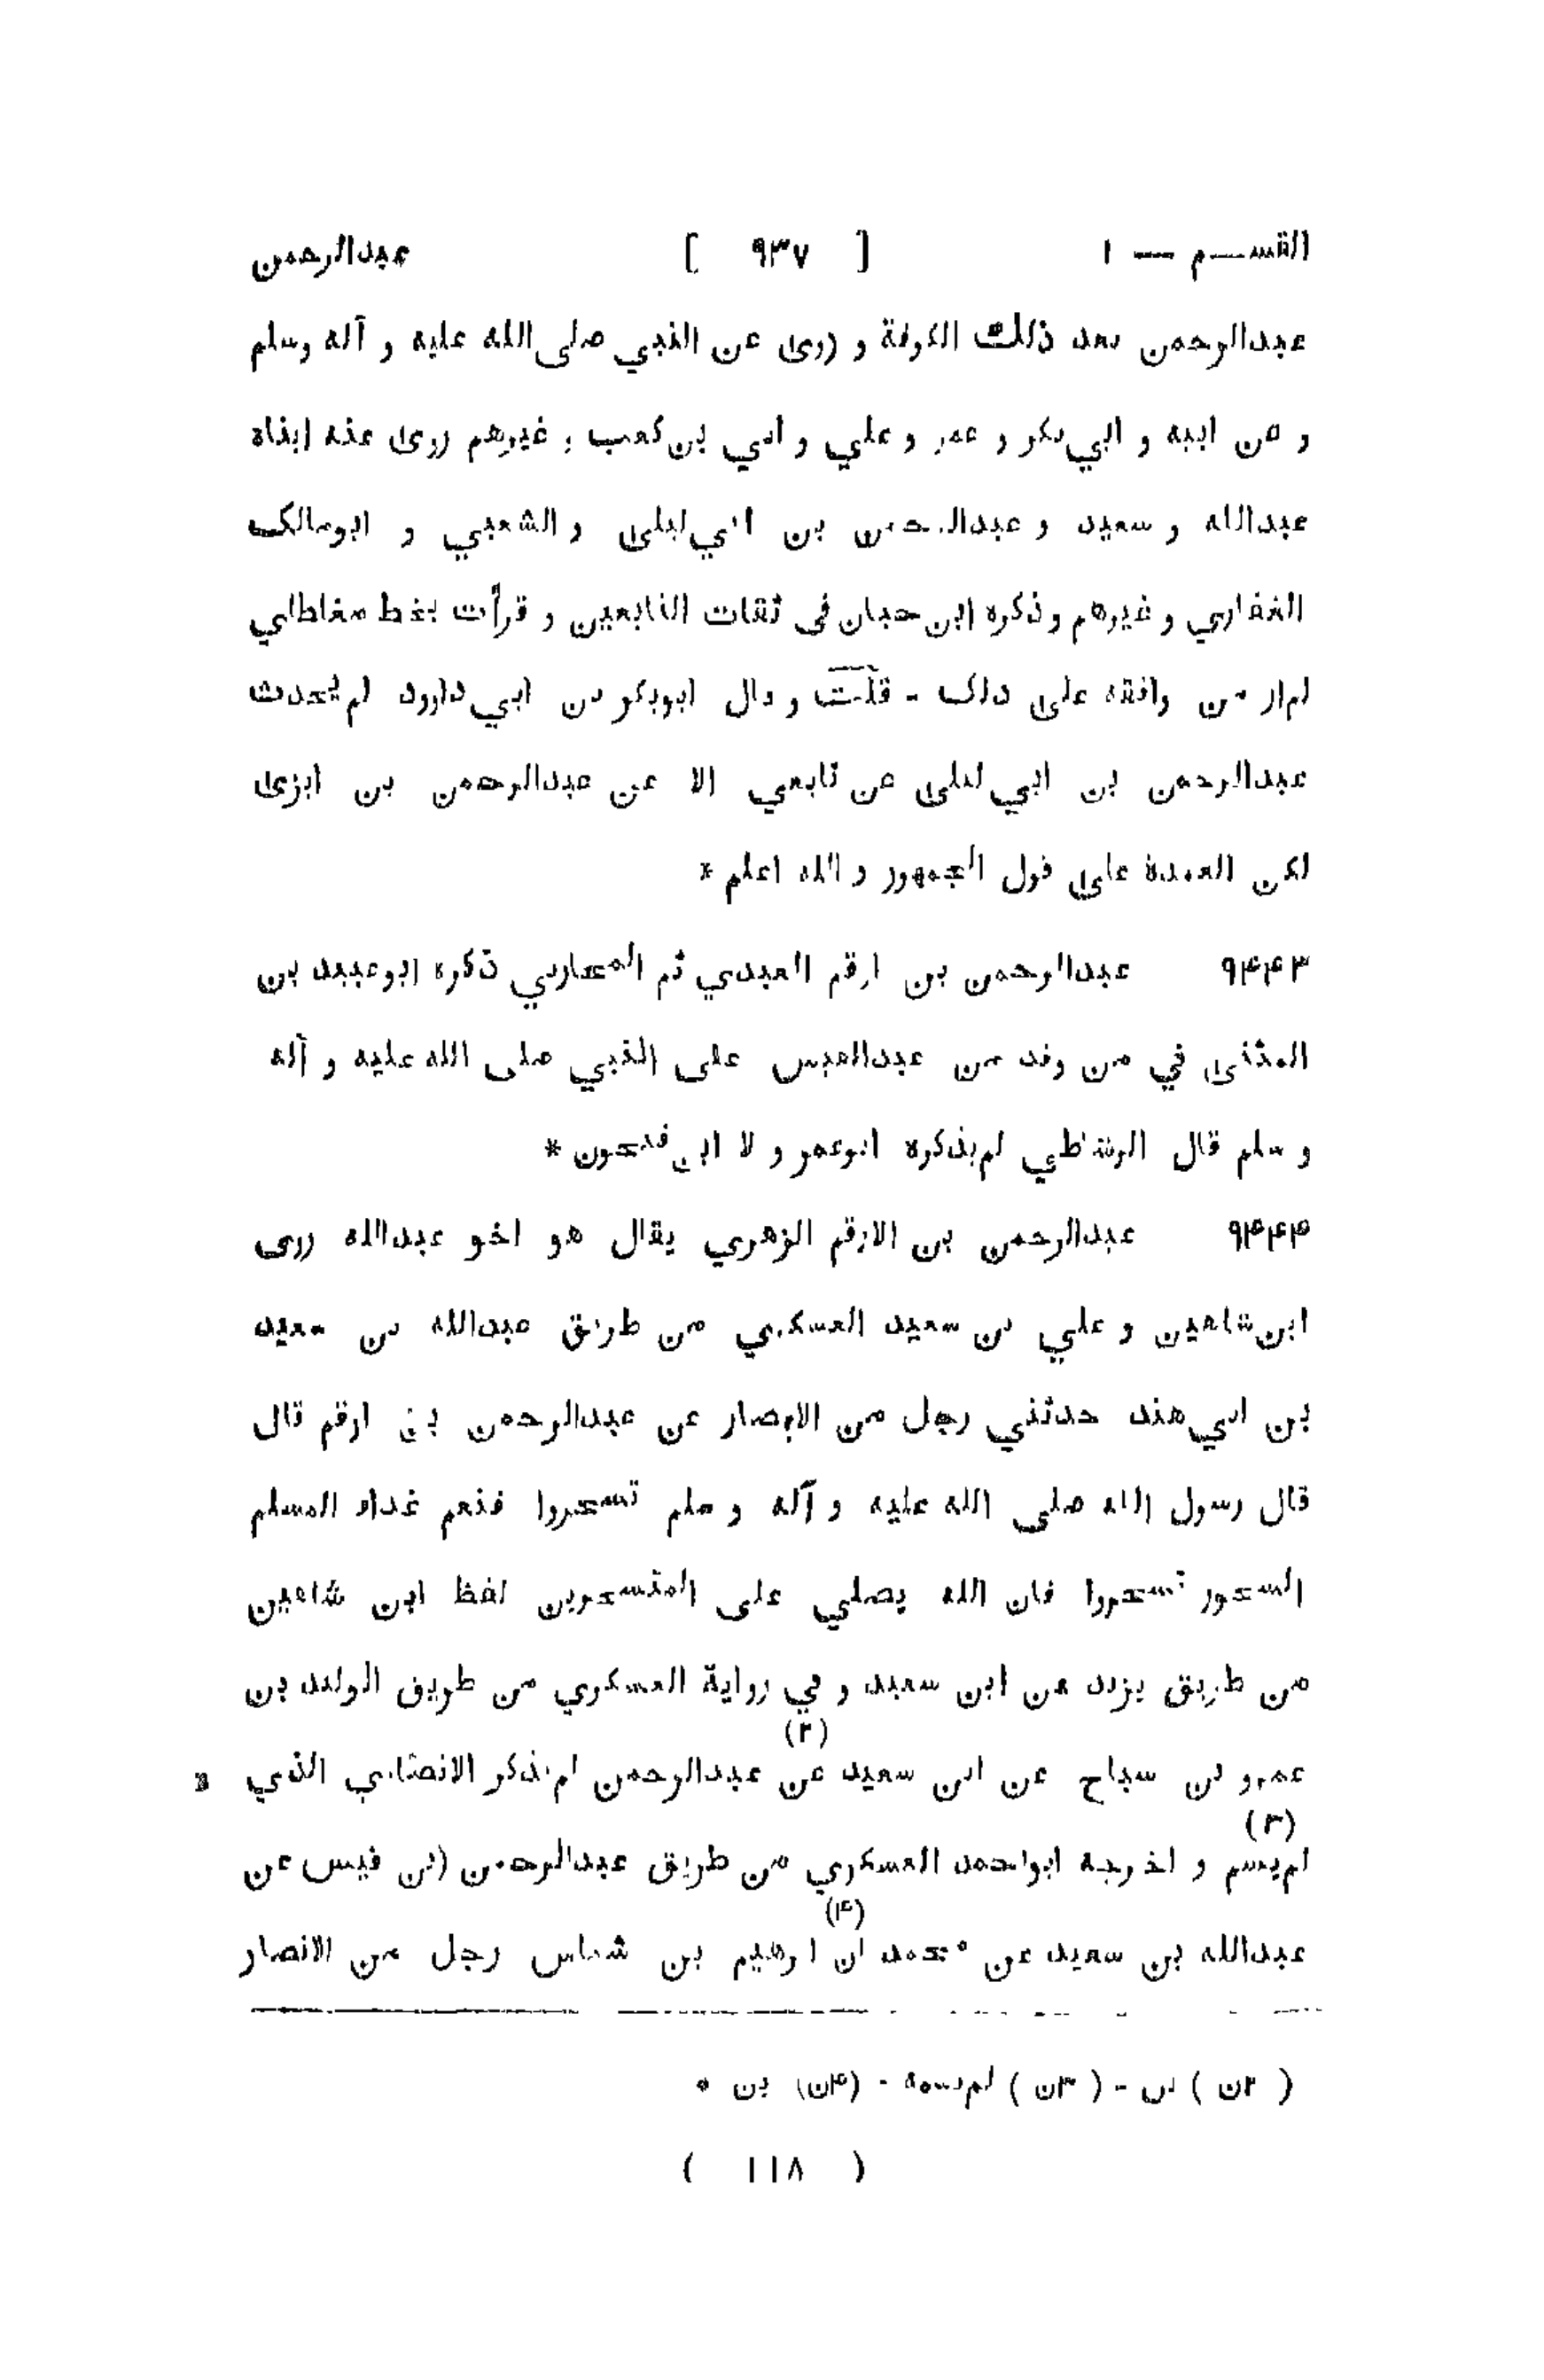 القســم — ١ [ ٩٣٧ ] عبدالرحمن
عبدالرحمن بعد ذلك الكوفة و روى عن النبي صلى الله عليه و آله وسلم
و عن ابيه و ابي بكر و عمر و علي و ابي بن كعب و غيرهم روى عنه ابناه
عبدالله و سعيد و عبدالرحمن بن ابي ليلى و الشعبي و ابومالك
الغفاري و غيرهم و ذكره ابن حبان فى ثقات التابعين و قرأت بخط مغلطاي
لم ار من وافقه على ذلك - قلت و قال ابوبكر بن ابي داوود لم يحدث
عبدالرحمن بن ابي ليلى عن تابعي الا عن عبدالرحمن بن ابزى
لكن العمدة على قول الجمهور و الله اعلم *
٩۴۴٣ عبدالرحمن بن ارقم العبدي ثم المحاربي ذكره ابوعبيد بن
المثنى في من وفد من عبدالقيس على النبي صلى الله عليه و آله
و سلم قال الرشاطي لم يذكره ابوعمر و لا ابن فتحون *
٩۴۴۴ عبدالرحمن بن الارقم الزهري يقال هو اخو عبدالله روى
ابن شاهين و علي بن سعيد العسكري من طريق عبدالله بن سعيد
بن ابي هند حدثني رجل من الانصار عن عبدالرحمن بن ارقم قال
قال رسول الله صلى الله عليه و آله و سلم تسحروا فنعم غداء المسلم
السحور تسحروا فان الله يصلي على المتسحرين لفظ ابن شاهين
من طريق يزيد عن ابن سعيد و في رواية العسكري من طريق الوليد بن
(٢)
عمرو بن سباح عن ابن سعيد عن عبدالرحمن لم يذكر الانصاري الذي
(٣)
لم يسم و اخرجه ابواحمد العسكري من طريق عبدالرحمن بن قيس عن
(۴)
عبدالله بن سعيد عن محمد ان ابرهيم بن شماس رجل من الانصار
( ٢ن ) بن - ( ٣ن ) لم يسمه - (۴ن) بن *
( ١١٨ )